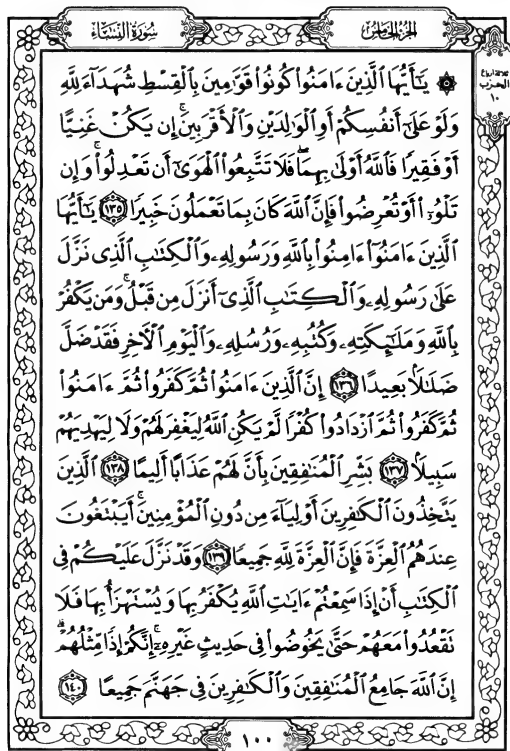 سُورَةُ النِّسَاءِ
الجُزْءُ الخَامِسُ
ثلاثة أرباع
الحزب
١٠
۞ يَٰٓأَيُّهَا ٱلَّذِينَ ءَامَنُوا۟ كُونُوا۟ قَوَّٰمِينَ بِٱلْقِسْطِ شُهَدَآءَ لِلَّهِ
وَلَوْ عَلَىٰٓ أَنفُسِكُمْ أَوِ ٱلْوَٰلِدَيْنِ وَٱلْأَقْرَبِينَ ۚ إِن يَكُنْ غَنِيًّا
أَوْ فَقِيرًا فَٱللَّهُ أَوْلَىٰ بِهِمَا ۖ فَلَا تَتَّبِعُوا۟ ٱلْهَوَىٰٓ أَن تَعْدِلُوا۟ ۚ وَإِن
تَلْوُۥٓا۟ أَوْ تُعْرِضُوا۟ فَإِنَّ ٱللَّهَ كَانَ بِمَا تَعْمَلُونَ خَبِيرًا ١٣٥ يَٰٓأَيُّهَا
ٱلَّذِينَ ءَامَنُوٓا۟ ءَامِنُوا۟ بِٱللَّهِ وَرَسُولِهِۦ وَٱلْكِتَٰبِ ٱلَّذِى نَزَّلَ
عَلَىٰ رَسُولِهِۦ وَٱلْكِتَٰبِ ٱلَّذِىٓ أَنزَلَ مِن قَبْلُ ۚ وَمَن يَكْفُرْ
بِٱللَّهِ وَمَلَٰٓئِكَتِهِۦ وَكُتُبِهِۦ وَرُسُلِهِۦ وَٱلْيَوْمِ ٱلْءَاخِرِ فَقَدْ ضَلَّ
ضَلَٰلًۢا بَعِيدًا ١٣٦ إِنَّ ٱلَّذِينَ ءَامَنُوا۟ ثُمَّ كَفَرُوا۟ ثُمَّ ءَامَنُوا۟
ثُمَّ كَفَرُوا۟ ثُمَّ ٱزْدَادُوا۟ كُفْرًا لَّمْ يَكُنِ ٱللَّهُ لِيَغْفِرَ لَهُمْ وَلَا لِيَهْدِيَهُمْ
سَبِيلًۢا ١٣٧ بَشِّرِ ٱلْمُنَٰفِقِينَ بِأَنَّ لَهُمْ عَذَابًا أَلِيمًا ١٣٨ ٱلَّذِينَ
يَتَّخِذُونَ ٱلْكَٰفِرِينَ أَوْلِيَآءَ مِن دُونِ ٱلْمُؤْمِنِينَ ۚ أَيَبْتَغُونَ
عِندَهُمُ ٱلْعِزَّةَ فَإِنَّ ٱلْعِزَّةَ لِلَّهِ جَمِيعًا ١٣٩ وَقَدْ نَزَّلَ عَلَيْكُمْ فِى
ٱلْكِتَٰبِ أَنْ إِذَا سَمِعْتُمْ ءَايَٰتِ ٱللَّهِ يُكْفَرُ بِهَا وَيُسْتَهْزَأُ بِهَا فَلَا
تَقْعُدُوا۟ مَعَهُمْ حَتَّىٰ يَخُوضُوا۟ فِى حَدِيثٍ غَيْرِهِۦٓ ۚ إِنَّكُمْ إِذًا مِّثْلُهُمْ ۗ
إِنَّ ٱللَّهَ جَامِعُ ٱلْمُنَٰفِقِينَ وَٱلْكَٰفِرِينَ فِى جَهَنَّمَ جَمِيعًا ١٤٠
١٠٠